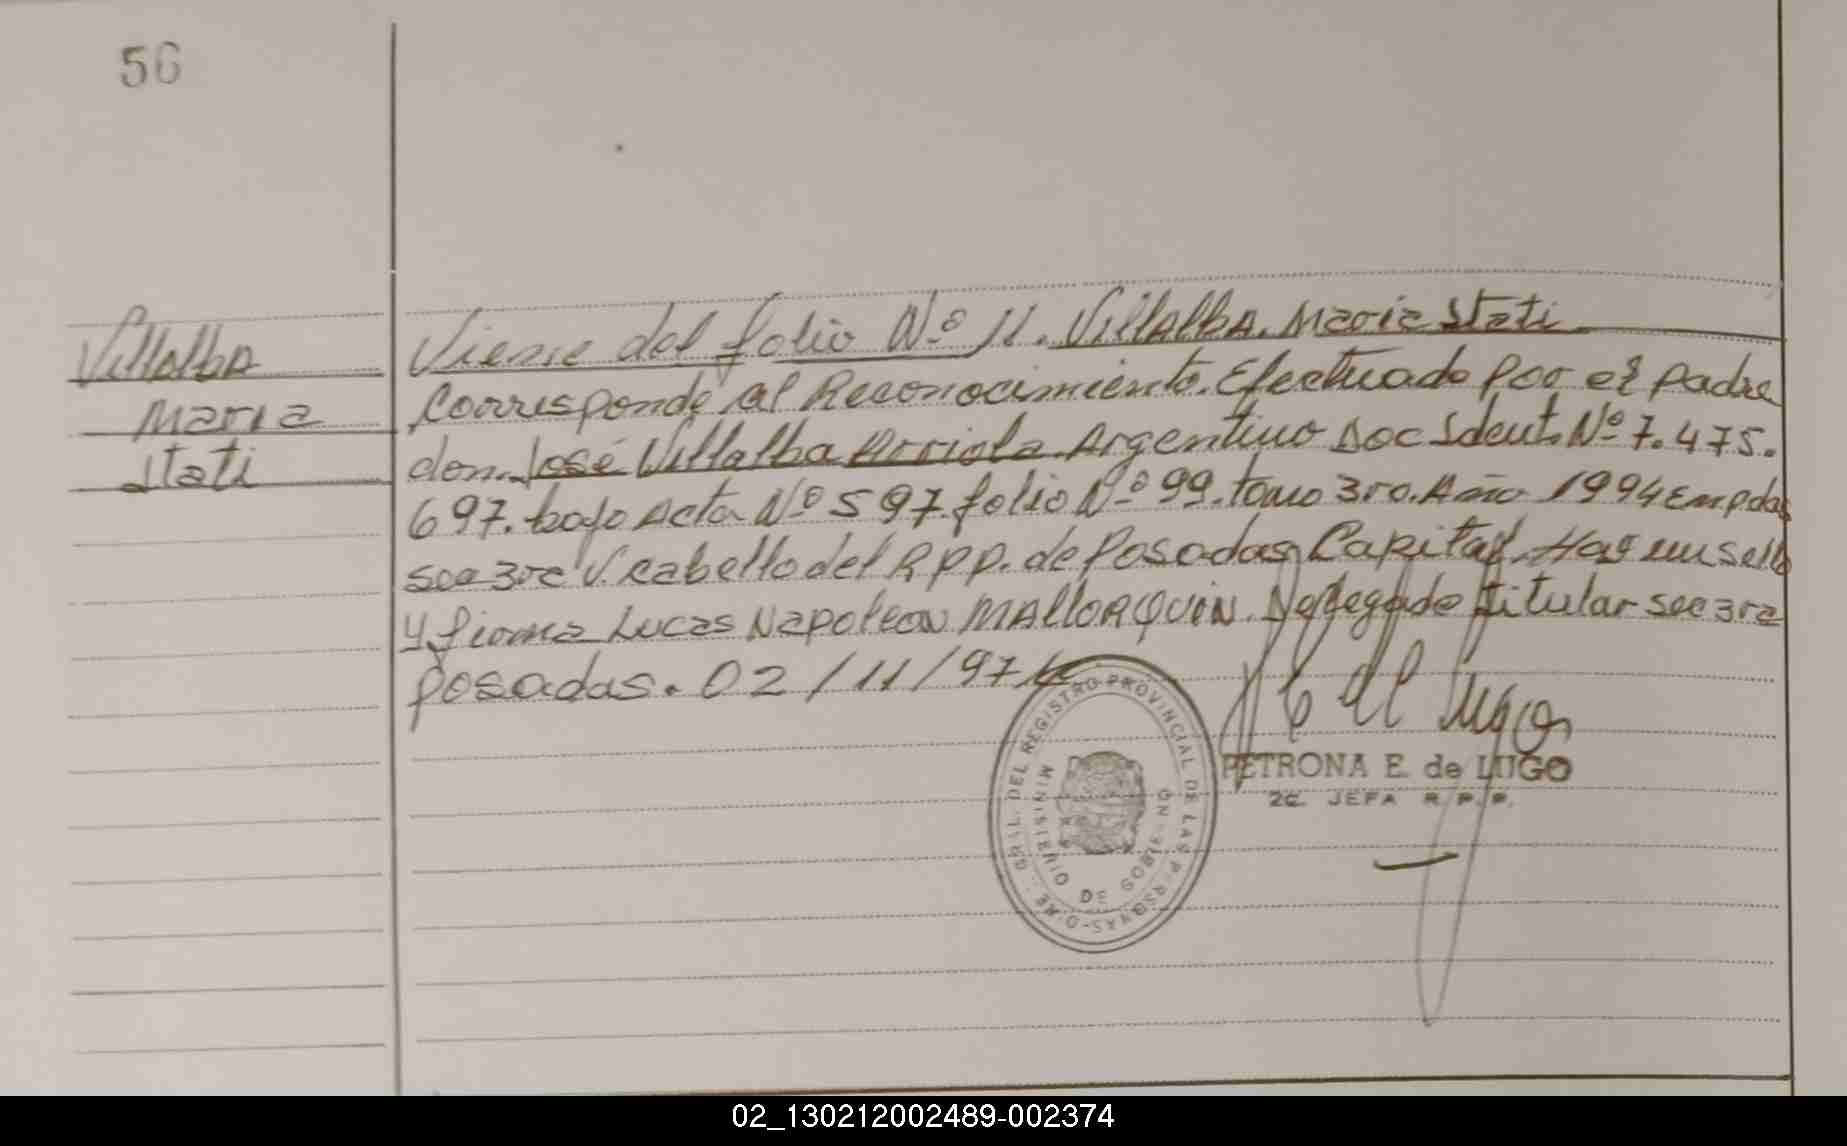 56
Villalba
Maria
Stati
Viene del folio Nº 11. Villalba. Maria Stati
Corresponde al Reconocimiento. Efectuado por el padre
don. José Villalba Arriola. Argentino Doc Ident. Nº 7.475.
697. bajo Acta Nº 597. folio Nº 99. tomo 3ro. Año 1994
Sec 3ra V. Cabello del R.P.P. de Posadas Capital. Hay un sello
y firma Lucas Napoleon MAllORQUIN. Delegado titular Sec 3ra
posadas. 02/11/97
PETRONA E. de LUGO
JEFA R.P.P.
GRAL. DEL REGISTRO PROVINCIAL DE LAS PERSONAS
MINISTERIO DE GOBIERNO
02_130212002489-002374